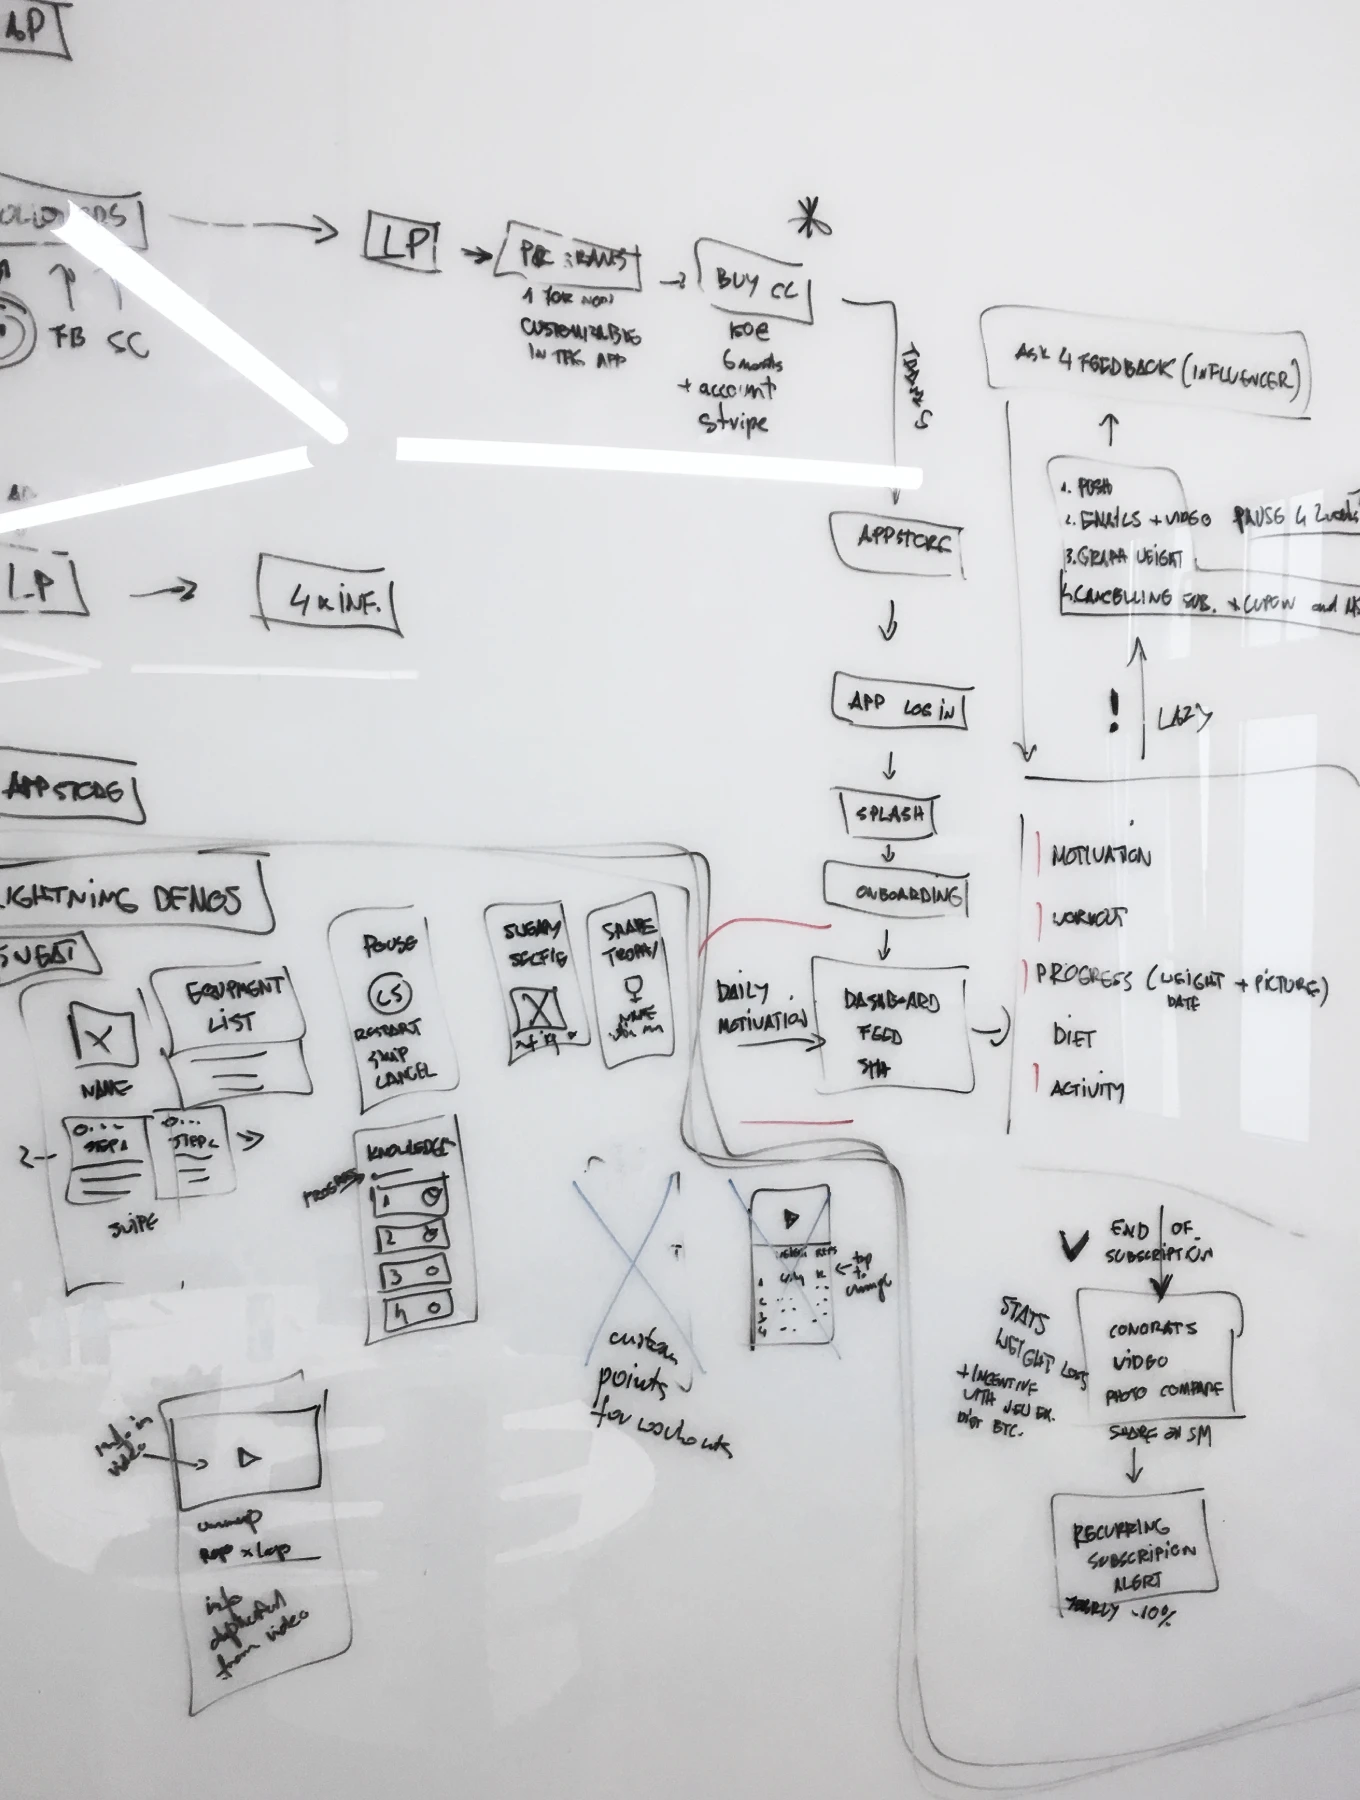 LP
BUY CC
1 FOR NON
CUSTOMIZABLE
IN THE APP
6 months
+ account
stripe
FB
SC
ASK 4 FEEDBACK (INFLUENCER)
1. PUSH
2. EMAILS + VIDEO
PAUSE 4 2 weeks
3. GRAPH WEIGHT
4. CANCELLING SUB. + CUPON and
LAZY
!
LP
4 x INF.
APPSTORE
APP LOGIN
SPLASH
ONBOARDING
DAILY
MOTIVATION
DASHBOARD
FEED
MOTIVATION
WORKOUT
PROGRESS (WEIGHT + PICTURE)
DATE
DIET
ACTIVITY
APPSTORE
IGHTNING DEMOS
SWEAT
NAME
EQUPMENT
LIST
STEP 1
STEP 2
SWIPE
PAUSE
RESTART
SKIP
CANCEL
SWEATY
SELFIE
SHARE
TROPHY
KNOWLEDGE
PROGRESS
1
2
3
4
custom
points
for workouts
REPS
tap
to
change
END OF
SUBSCRIPTION
STATS
WEIGHT LOSS
+ INCENTIVE
WITH NEW EX.
DIET ETC.
CONGRATS
VIDEO
PHOTO COMPARE
SHARE ON SM
RECURRING
SUBSCRIPION
ALERT
YEARLY -10%
info in
video
warmup
Rep x Lap
info
duplicated
from video